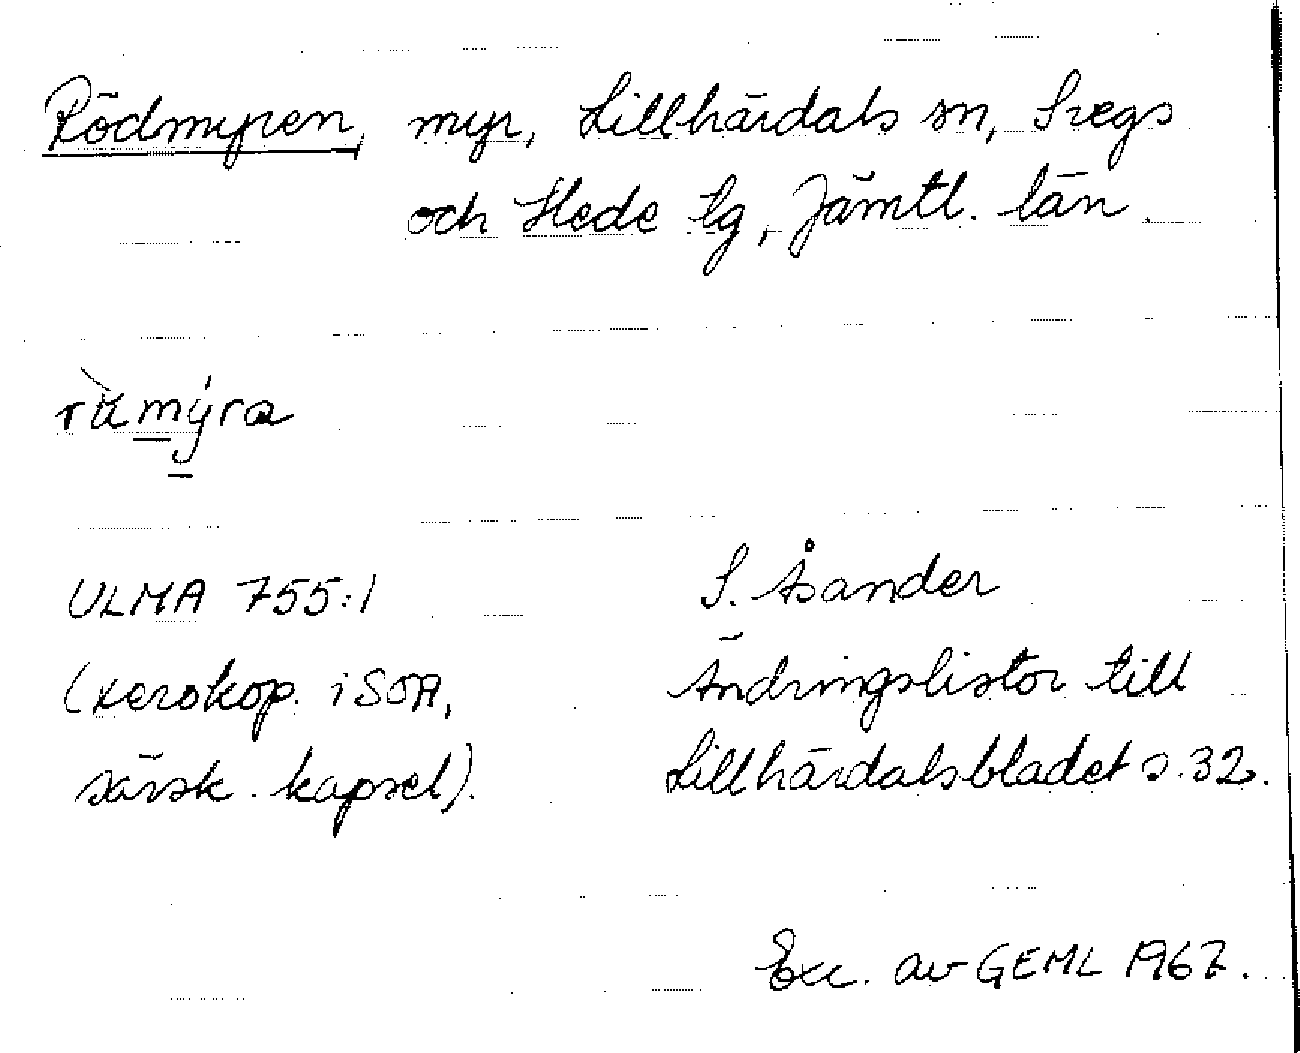 Rödmyren, myr, Lillhärdals sn, Svegs
och Hede tg, Jämtl. län.
rùmýra
ULMA 755:1
S. Åsander
(xerokop. i SOA,
särsk. kapsel).
Ändringslistor till
Lillhärdalsbladet s. 32.
Exc. av GEML 1967.